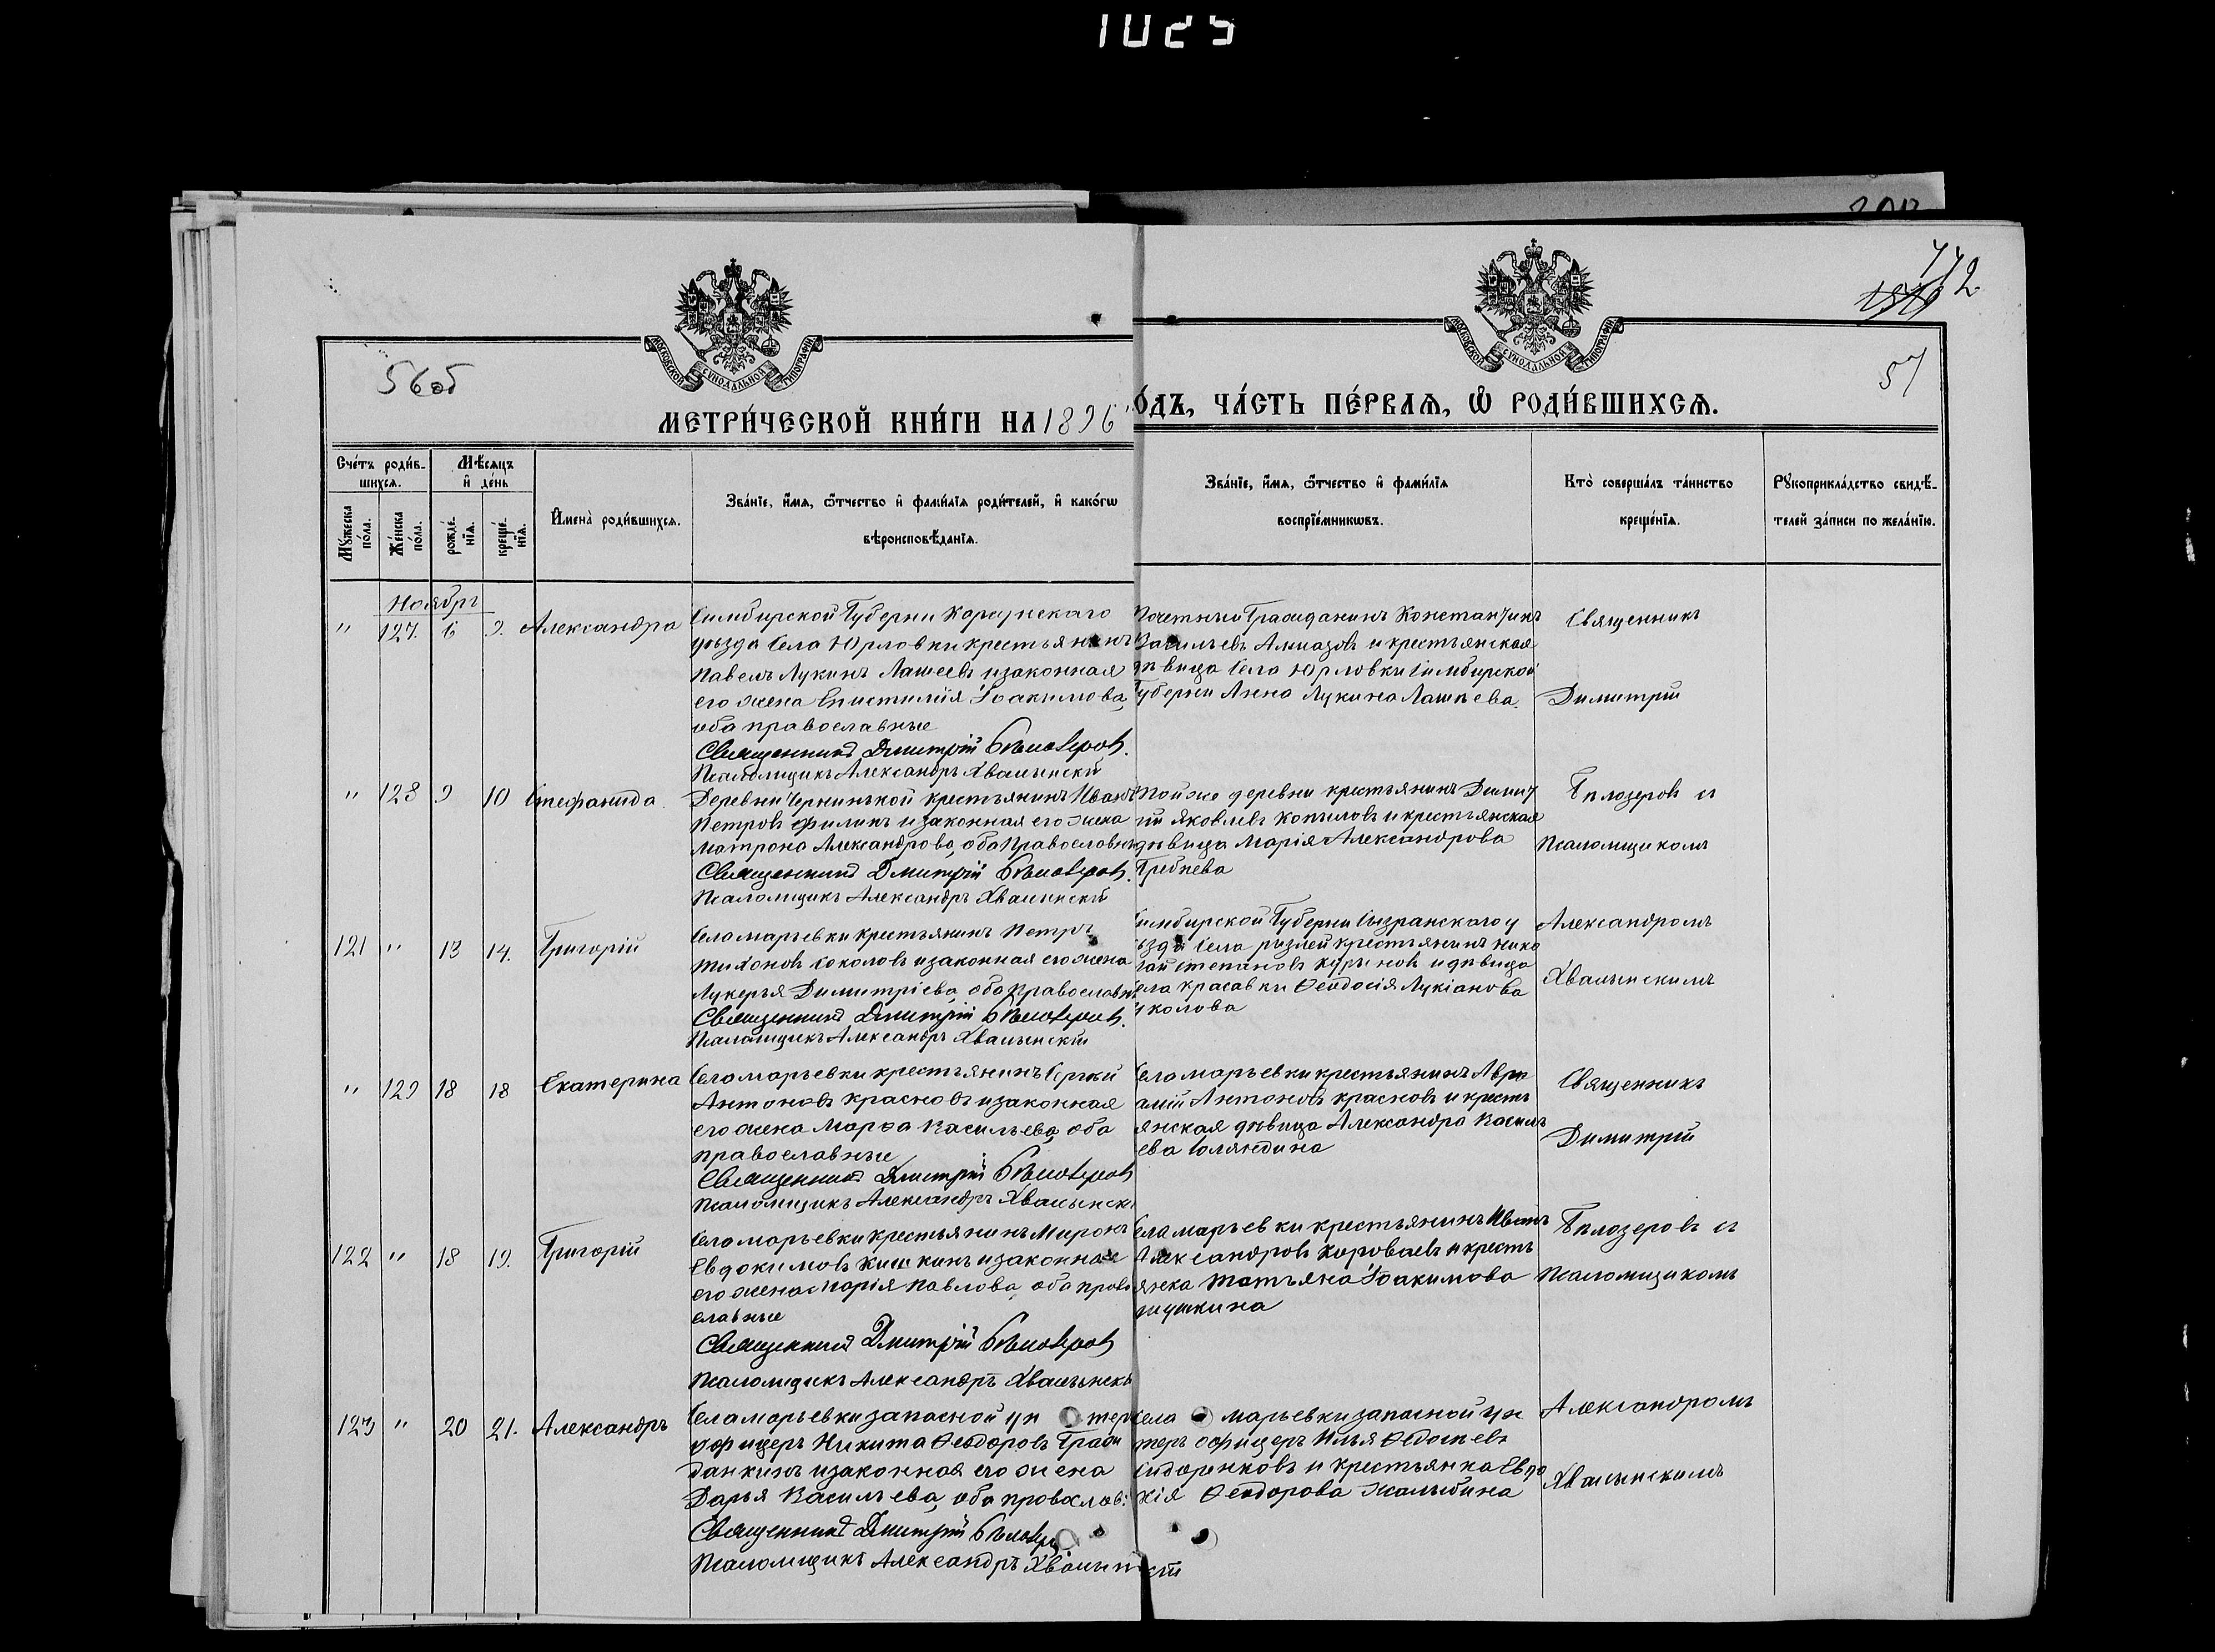 1025
772
56об
57
МОСКОВСКОЙ СУНОДАЛЬНОЙ ТИПОГРАФІИ
МОСКОВСКОЙ СУНОДАЛЬНОЙ ТИПОГРАФІИ
МЕТРИ́ЧЕСКОЙ КНИ́ГИ НА 1896
О́ДЪ, ЧА́СТЬ ПЕ́РВАЯ, Ѡ҆ РОДИ́ВШИХСЯ.
Сче́тъ роди́в-
шихся.
Мѣ́сяцъ
и҆ де́нь
Му́жеска по́ла.
Же́нска по́ла.
рожде́-
нїя.
креще́-
нїя.
И҆мена̀ роди́вшихся.
Зва́нїе, и҆́мя, ѻ҆́тчество и҆ фами́лїя роди́телей, и҆ како́гѡ
вѣроисповѣ́данїя.
Зва́нїе, и҆́мя, ѻ҆́тчество и҆ фами́лїя
воспрїе́мникѡвъ.
Кто̀ соверша́лъ та́инство
креще́нїя.
Рꙋкоприкла́дство свидѣ́-
телей за́писи по жела́нїю.
Ноябрь
" 127. 6 9. Александра
Симбирской Губерни Корсунскаго
уѣзда Села Юрловки крестьянинъ
Павелъ Лукинъ Лашеевъ и законная
его жена Епистимія Іоакимова,
оба православные
Священникъ Дмитрій Бѣлозеровъ.
Псаломщикъ Александръ Хвалынскій
Почетный Гражданинъ Константинъ
Васильевъ Алмазовъ и крестьянская
дѣвица Села Юрловки Симбирской
Губерни Анна Лукина Лашѣева.
Священникъ
Димитрій
" 128 9 10 Стефанида
Деревни Чернинькой крестьянинъ Иванъ
Петровъ Филинъ и законная его жена
Матрона Александрова, оба Православные
Священникъ Дмитрій Бѣлозеровъ.
Псаломщикъ Александръ Хвалынскій
Той же деревни крестьянинъ Димит
ій Яковлевъ Копыловъ и крестьянская
дѣвица Марія Александрова
Грибнева
Бѣлозеровъ съ
Псаломщикомъ
121 " 13 14. Григорій
Села марьевки крестьянинъ Петръ
Тихоновъ Соколовъ и законная его жена
Лукерья Димитріева, оба Православные
Священникъ Дмитрій Бѣлозеровъ.
Псаломщикъ Александръ Хвалынскій
Симбирской Губерни Сызранскаго у
ѣзда Села ризлей крестьянинъ нико
лай степановъ и дѣвица
села красавки Ѳеодосія Лукіанова
Соколова
Александромъ
Хвалынскимъ
" 129 18 18 Екатерина
Села марьевки крестьянинъ Сергѣй
Антоновъ красновъ и законная
его жена Марѳа Васильева, оба
православные
Священникъ Дмитрій Бѣлозеровъ
Псаломщикъ Александръ Хвалынскі
Села марьевки крестьянинъ Авра
амій Антоновъ красновъ и кресть
янская дѣвица Александра Василь
ева
Священникъ
Димитрій
122 " 18 19. Григорій
Села марьевки крестьянинъ Миронъ
Евдокимовъ Кишкинъ и законная
его жена Марія Павлова, оба право
славные
Священникъ Дмитрій Бѣлозеровъ
Псаломщикъ Александръ Хвалынскі
Села марьевки крестьянинъ Иванъ
Александровъ Короваевъ и кресть
янка Татьяна Іоакимова
Бѣлозеровъ съ
Псаломщикомъ
123 " 20 21. Александръ
Села марьевки запасной ун тер
офицеръ Никита Ѳеодоровъ Граж
данкинъ и законная его жена
Дарья Васильева, оба правослов:
Священникъ Дмитрій Бѣлозер
Псаломщикъ Александръ Хвалынскій
Села марьевки запасной ун
теръ офицеръ Илья Ѳедотьевъ
Сидоренковъ и крестьянка Евдо
кія Ѳеодорова Жалыбина
Александромъ
Хвалынскимъ